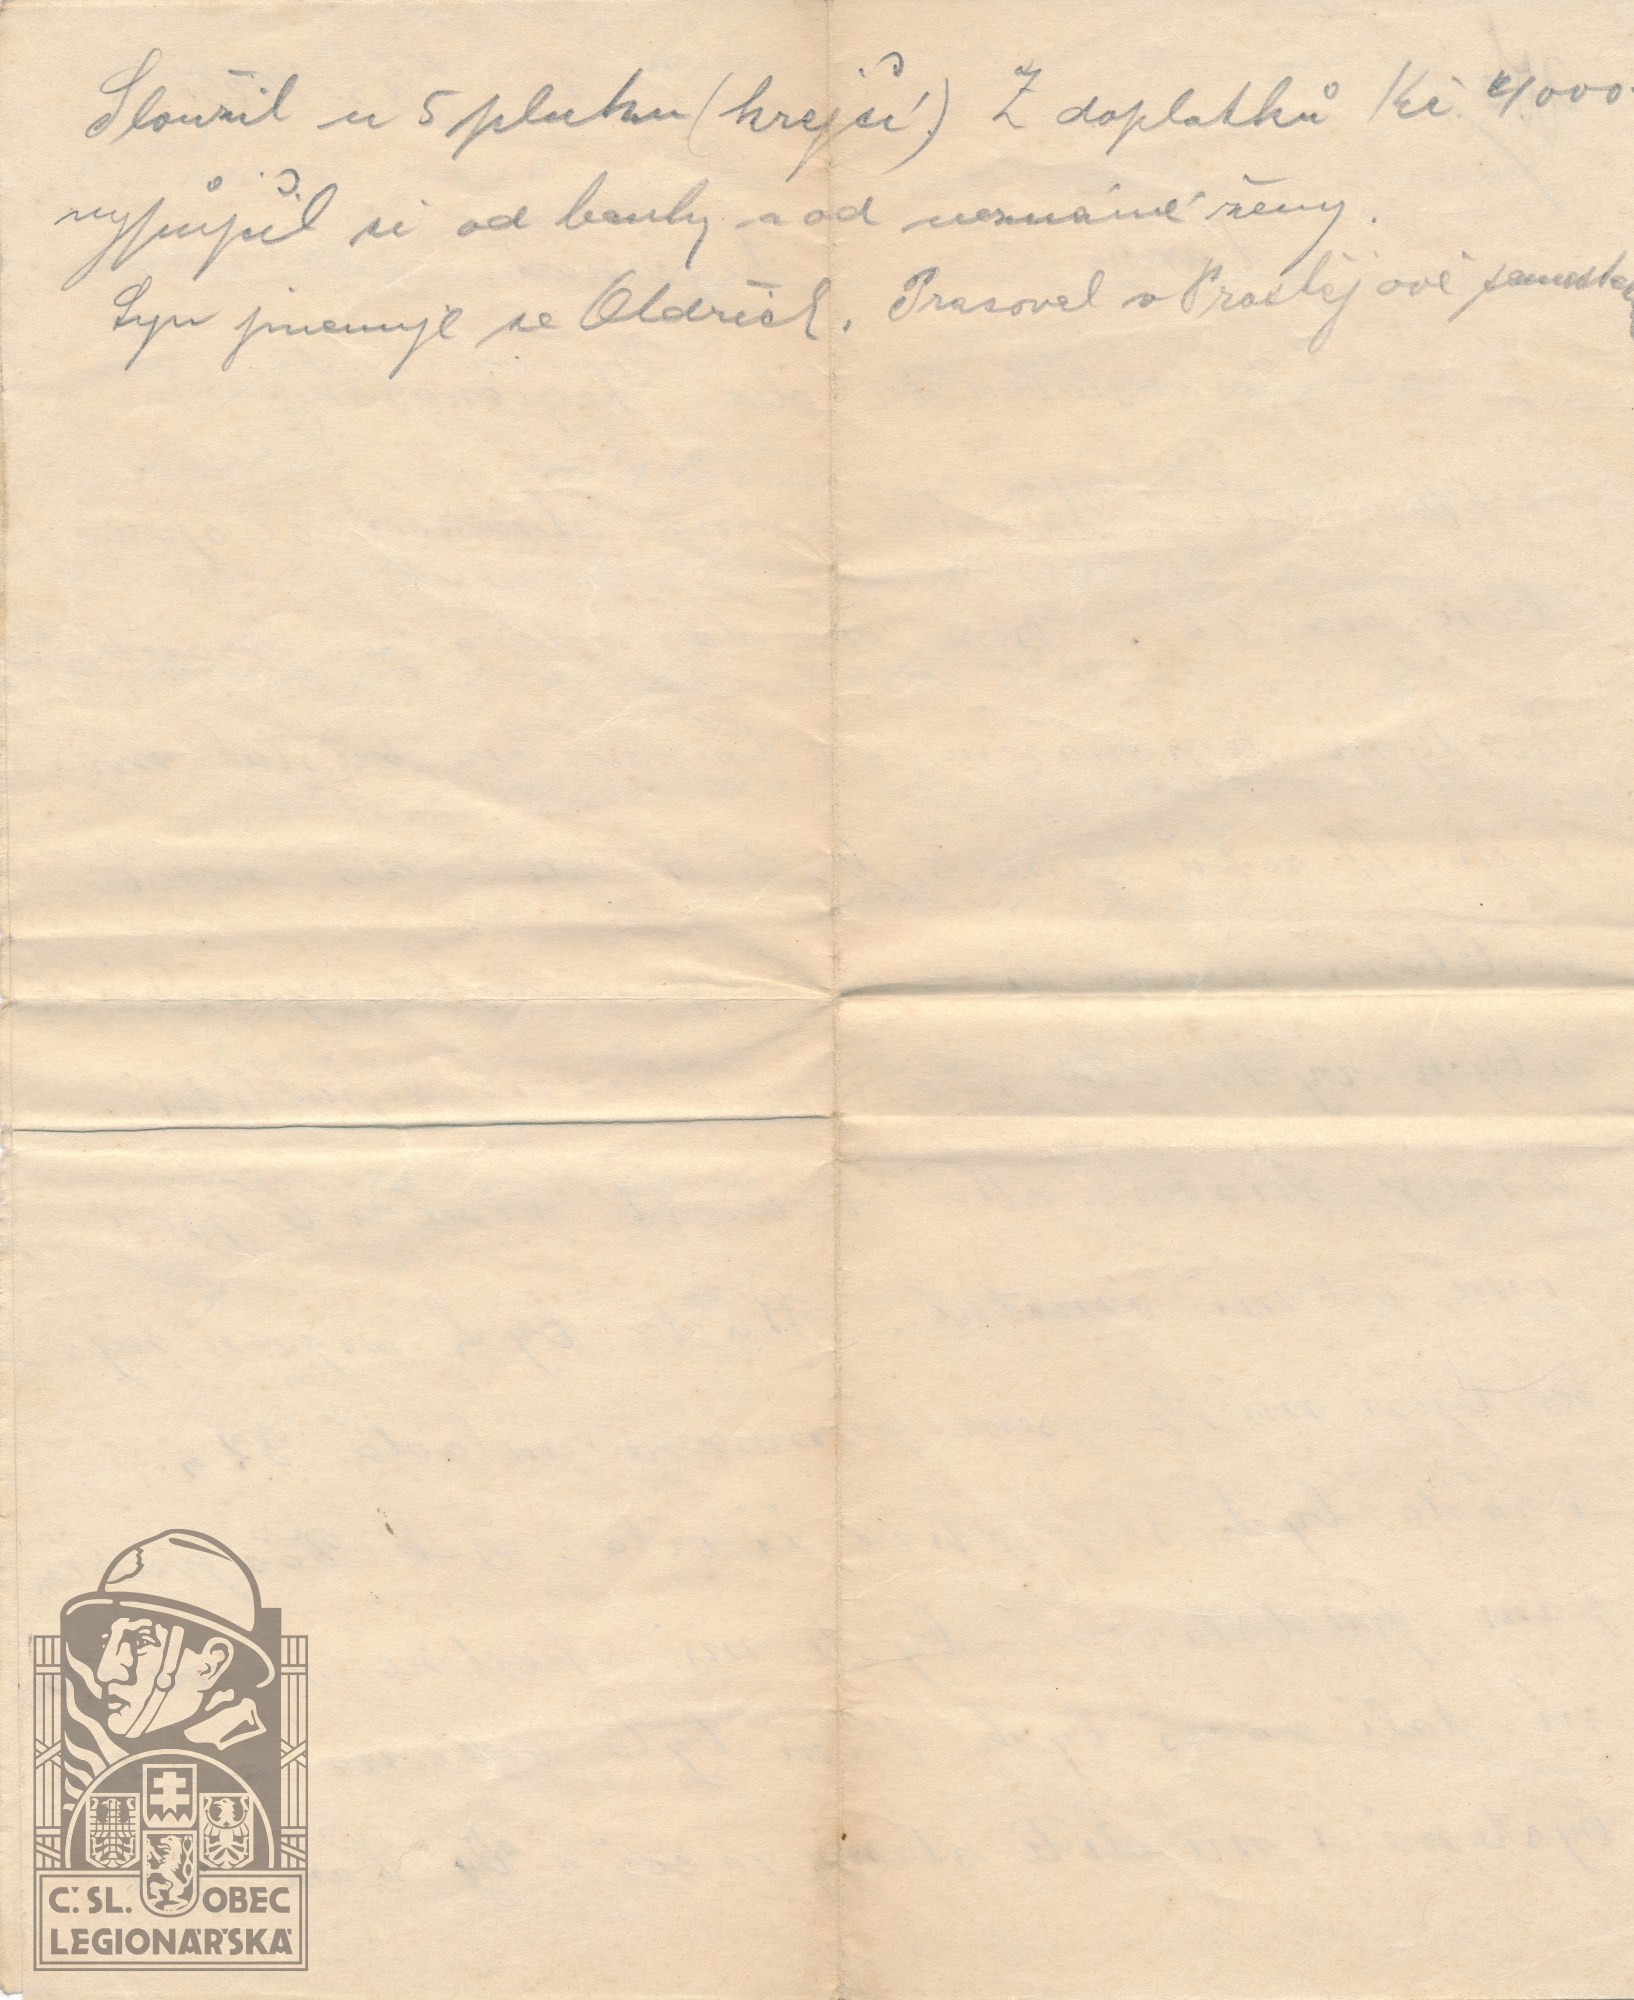 Sloužil u 5 pluku (krejčí.) Z doplatků Kč 4.000.
vypůjčil si od banky a od neznámé ženy.
Syn jmenuje se Oldřich. Pracoval v Prostějově
Č. SL. OBEC
LEGIONÁŘSKÁ